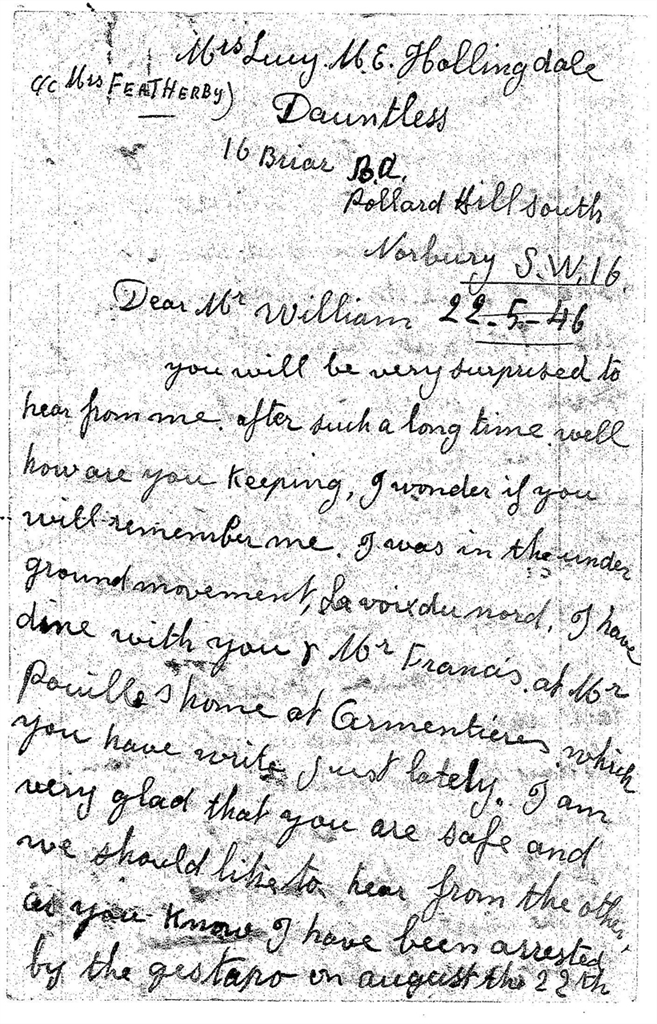 Mrs Lucy. M.E. Hollingdale
c/c Mrs FEATHERBY)
Dauntless
16 Briar Rd.
Pollard Hill south
Norbury S.W.16.
Dear Mr William 22-5-46
you will be very surprised to
hear from me. after such a long time. well
how are you Keeping, I wonder if you
will remember me. I was in the under
ground movement, La voix du nord. I have
dine with you & Mr Francis. at Mr
Pouilles home at Armentières. which
you have write just lately. I am
very glad that you are safe and
we should like to hear from the other,
as you know I have been arrested
by the gestapo on august the 22th